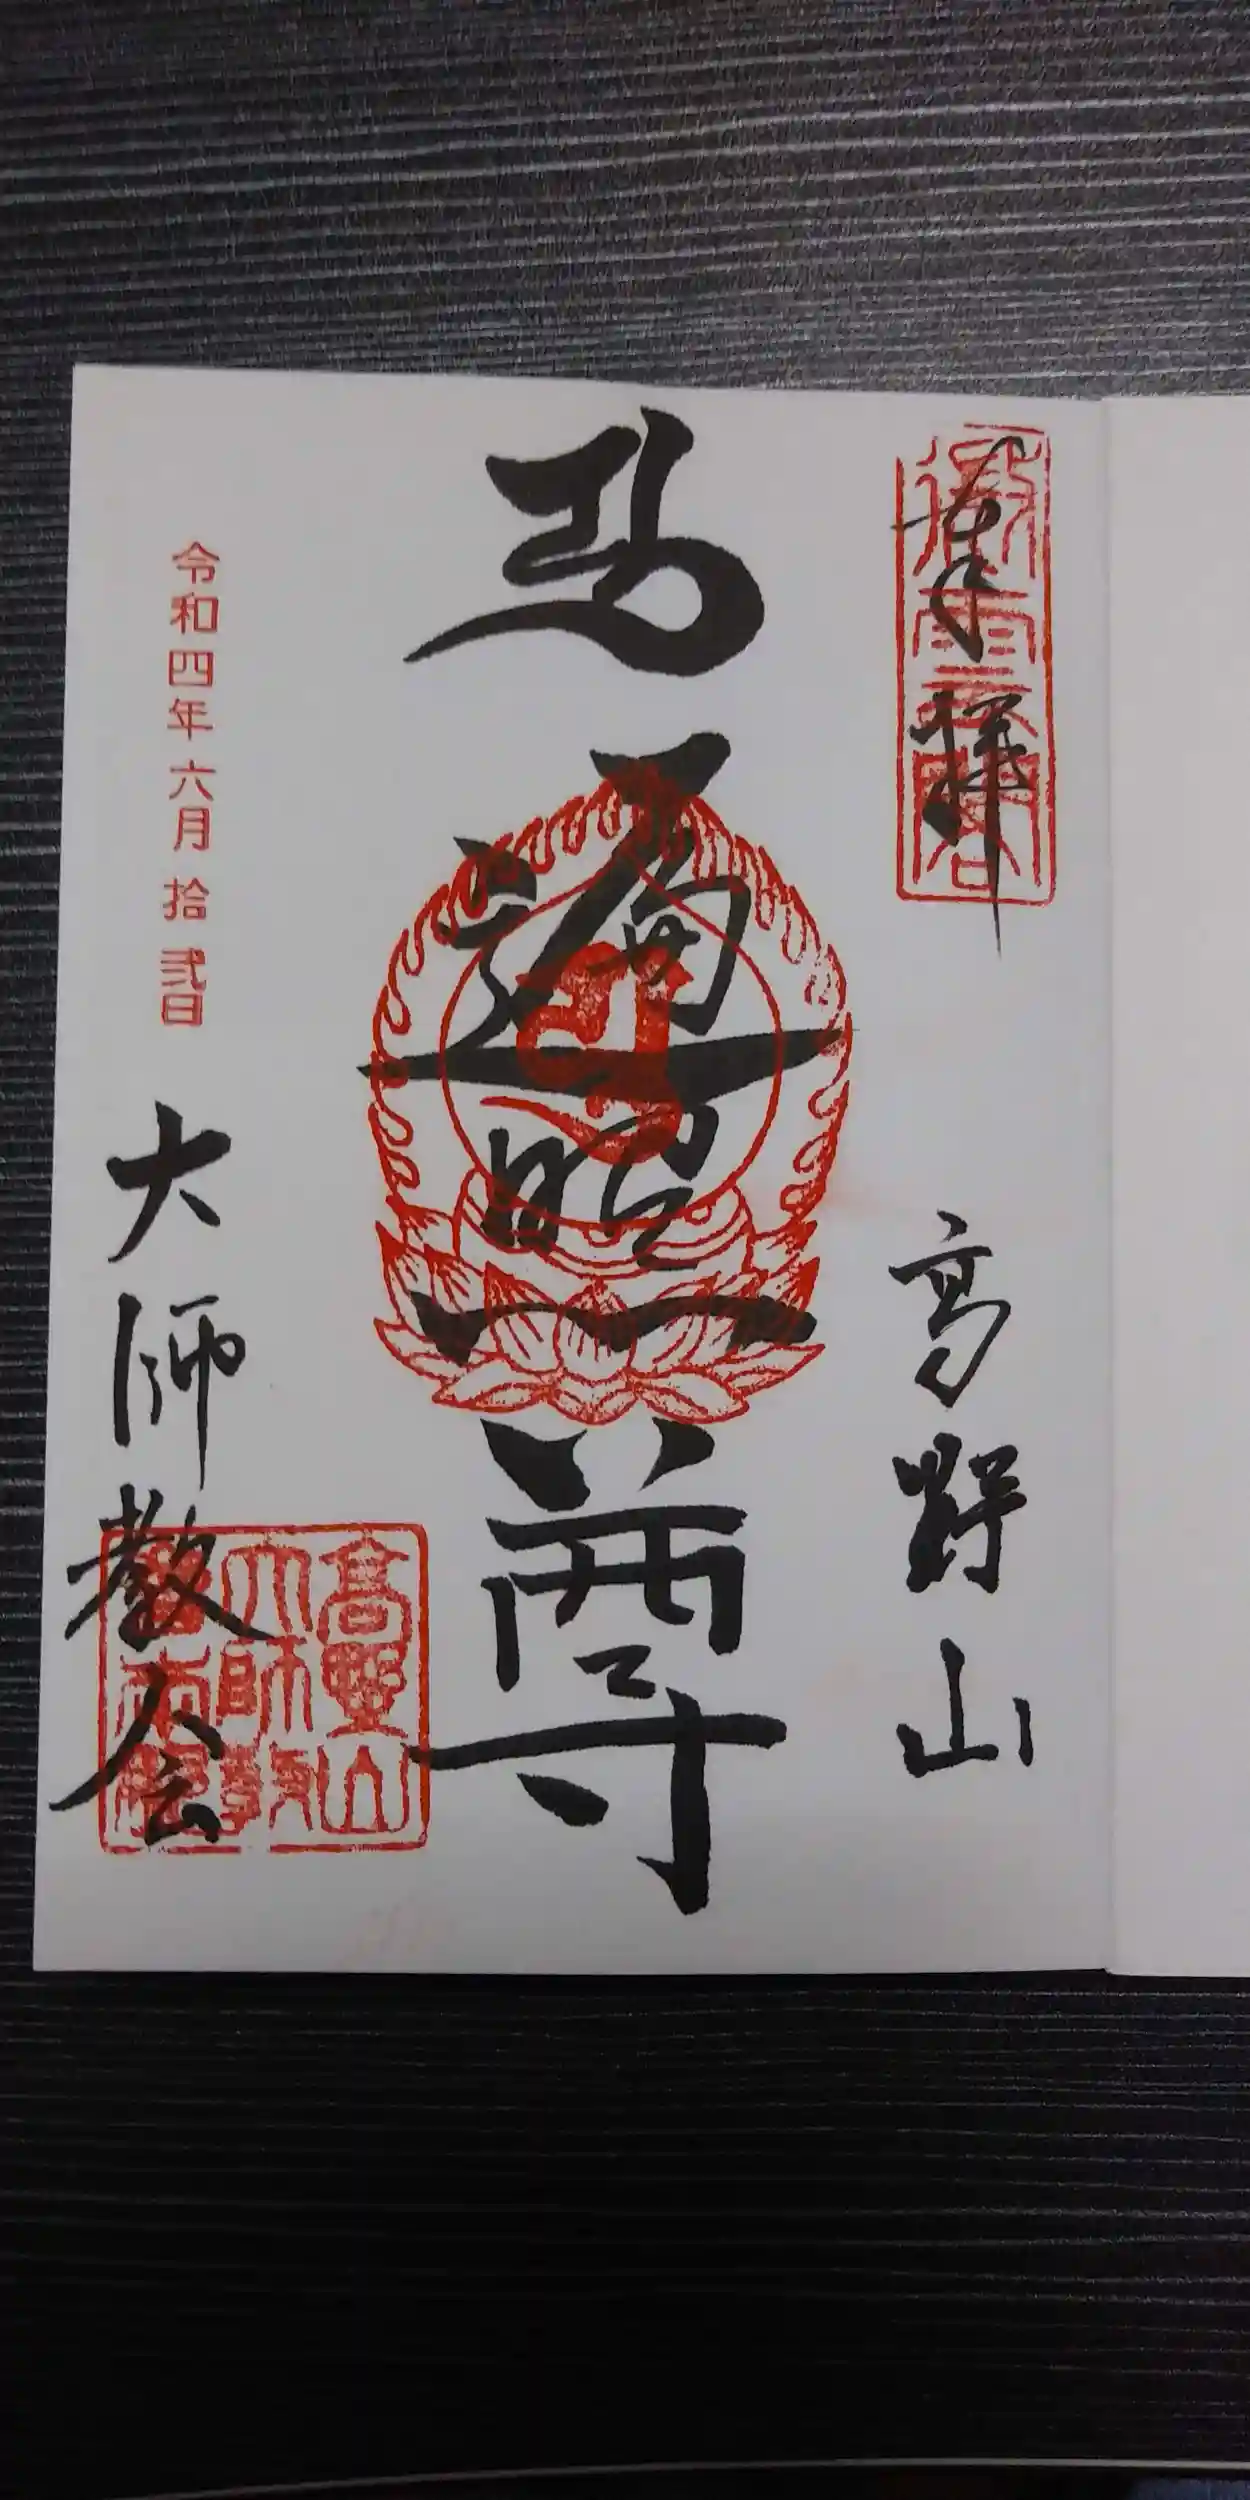 奉拝
高野山
遍照尊
令和四年六月拾弐日
大師教会
高野山大師教会本部